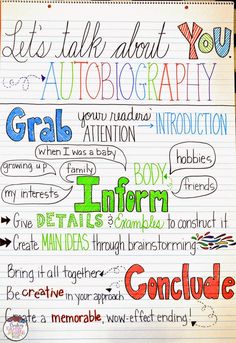 Let's talk about YOU.
AUTOBIOGRAPHY
Grab your readers' ATTENTION → INTRODUCTION
when I was a baby
growing up
family
my interests
BODY
hobbies
friends
Inform
Give DETAILS & Examples to construct it
Create MAIN IDEAS through brainstorming
Bring it all together
Conclude
Be creative in your approach
Create a memorable, wow-effect ending!